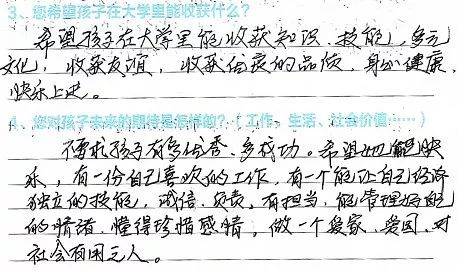 3、您希望孩子在大学里能收获什么?
希望孩子在大学里能收获知识、技能、多元
文化,收获友谊,收获优良的品质,身心健康,
快乐上进。
4、您对孩子未来的期待是怎样的?(工作、生活、社会价值……)
不要求孩子有多优秀、多成功。希望她能快
乐,有一份自己喜欢的工作,有一个能让自己经济
独立的技能,诚信、负责、有担当,能管理好自己
的情绪,懂得珍惜感情,做一个爱家、爱国、对
社会有用之人。